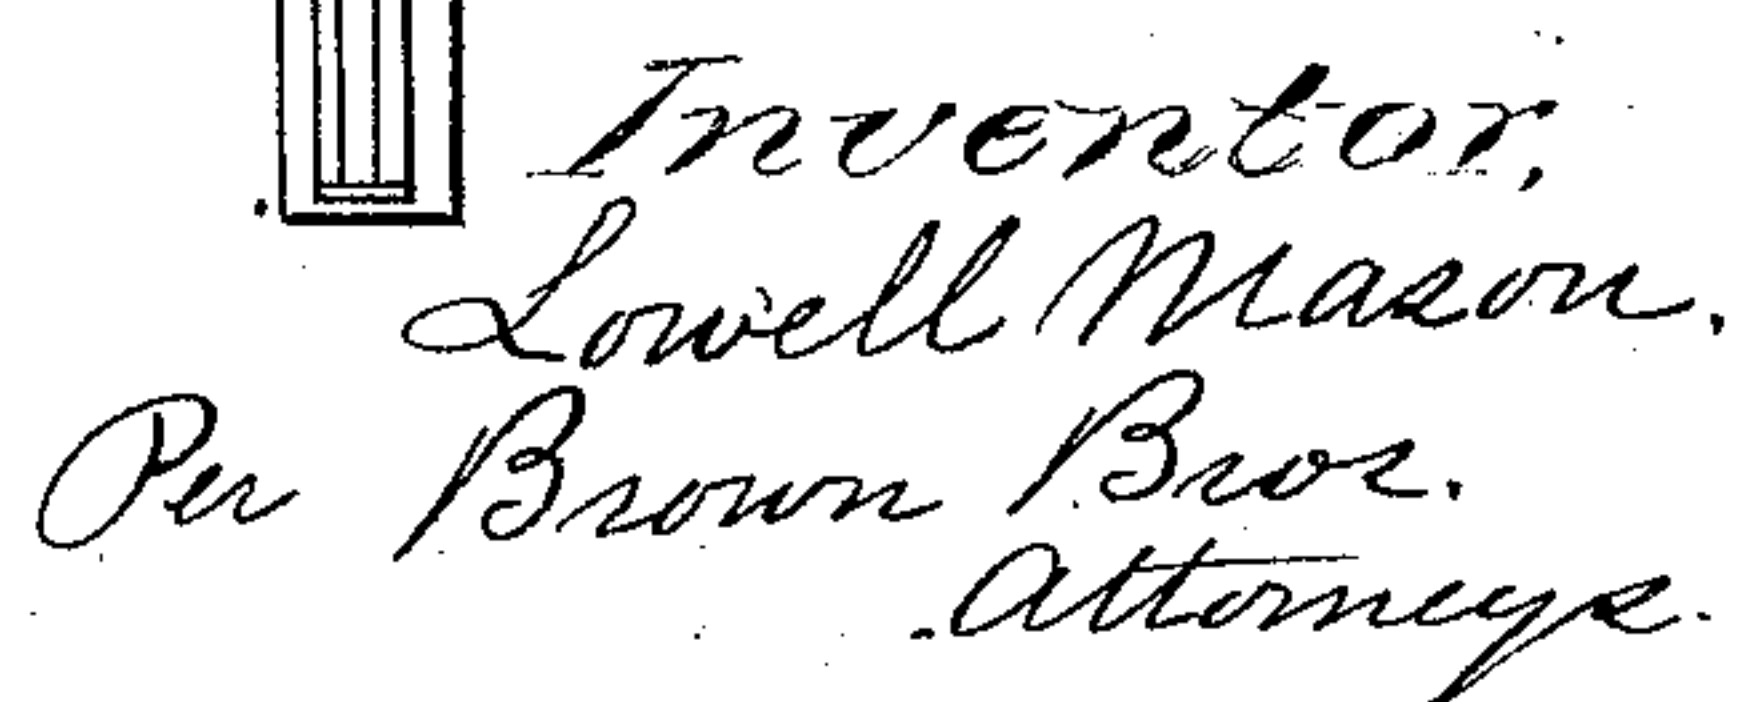 Inventor,
Lowell Mason.
Per Brown Bros.
Attorneys.